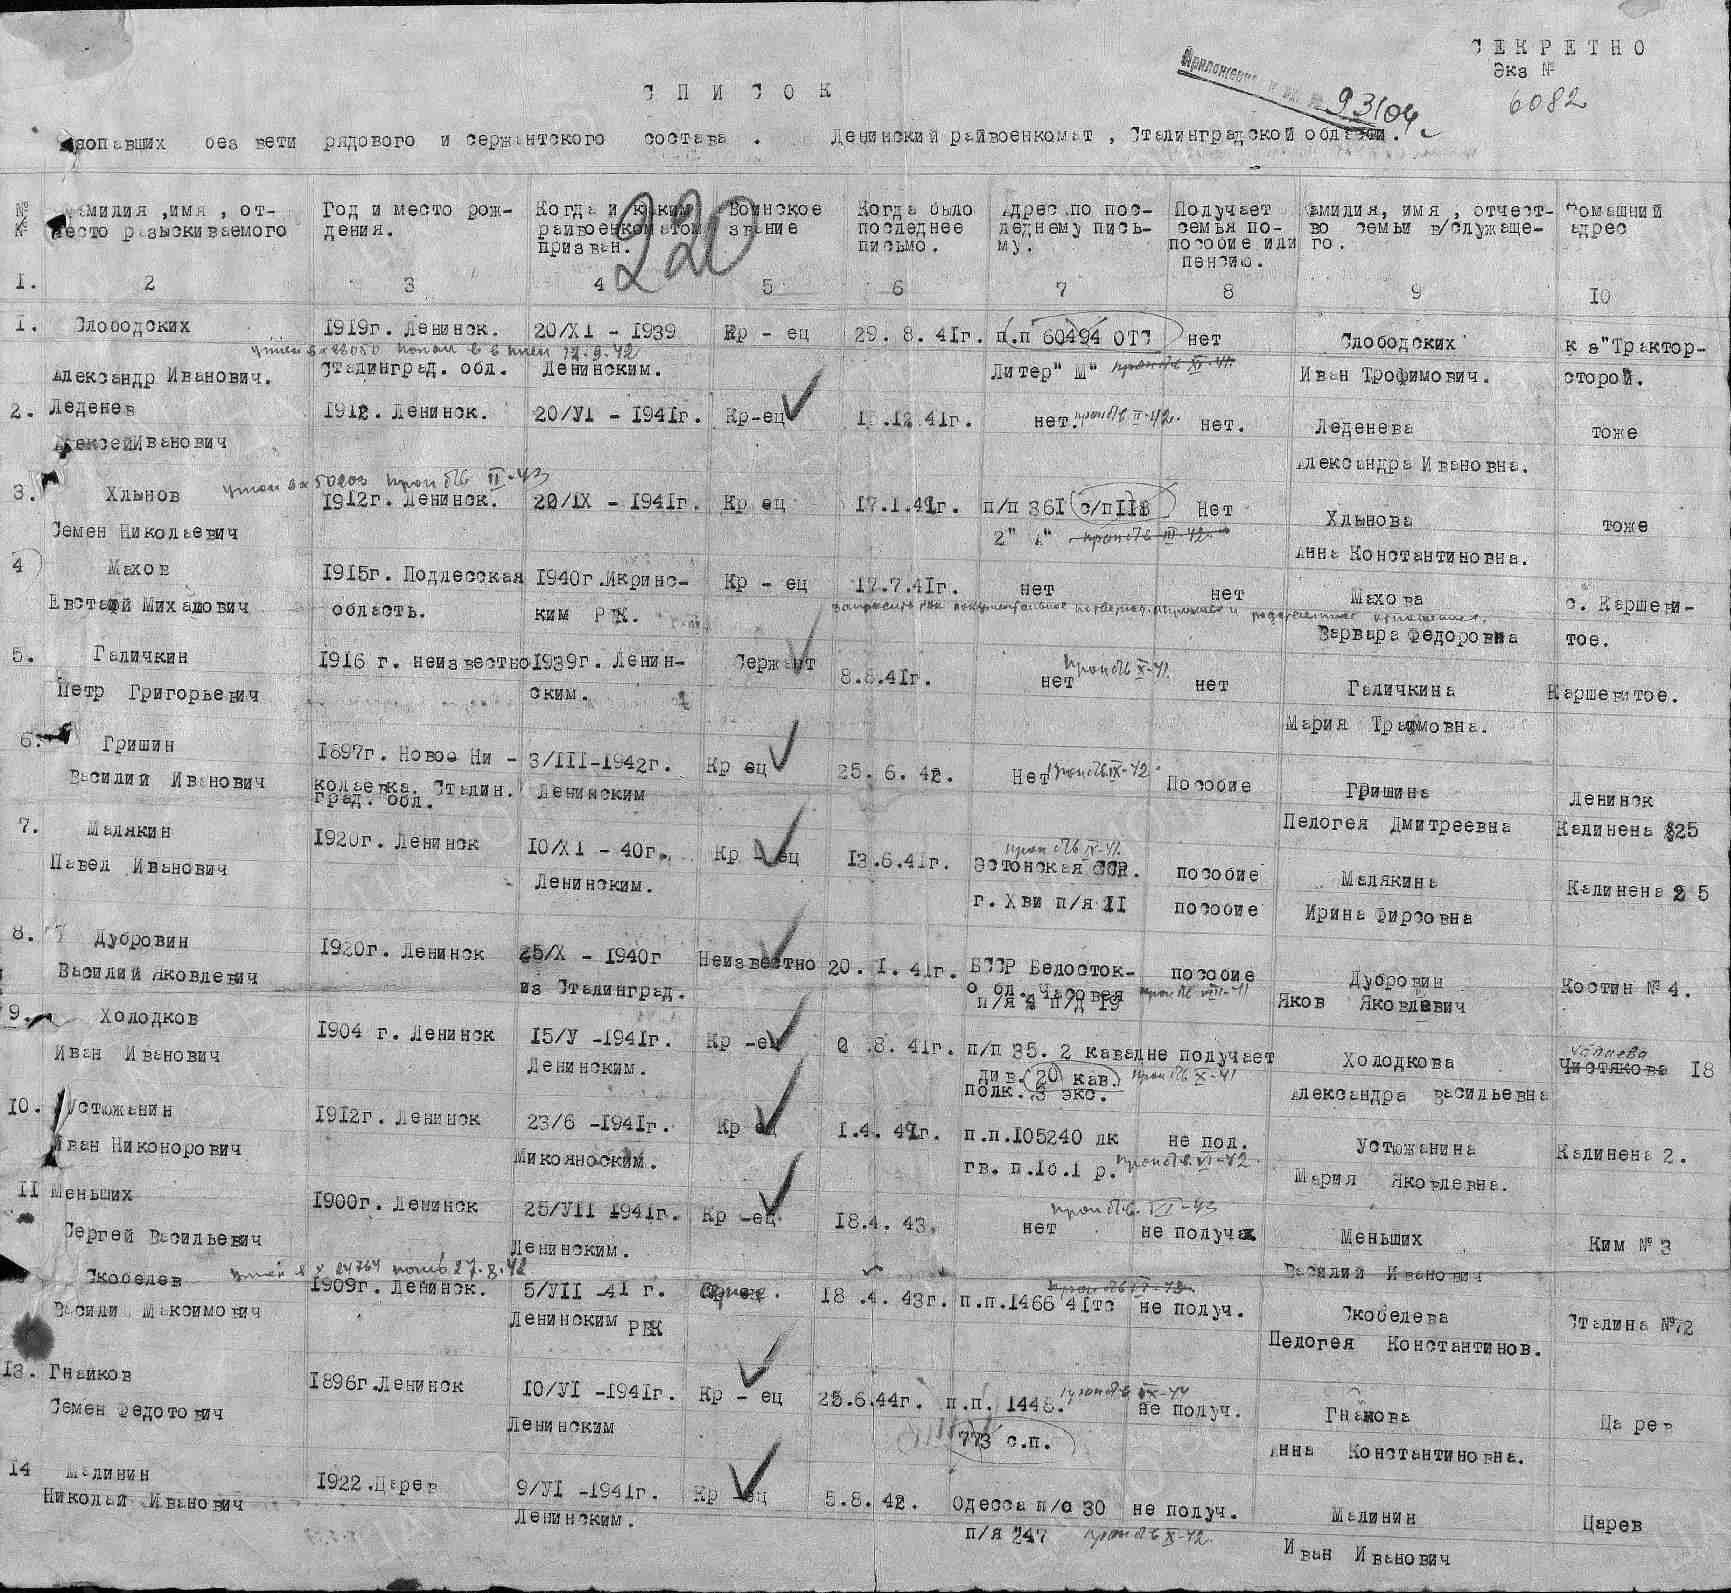 СЕКРЕТНО
Экз №
6082
Приложение
93104
СПИСОК
без вести рядового и сержантского состава . Ленинский райвоенкомат , Сталинградской области.
220
№ Фамилия ,имя , от- Год и место рож- Когда и каким Воинское Когда было Адрес по пос- Получает Фамилия, имя , отчест- Домашний
место разыскиваемого дения. райвоенкоматом звание последнее леднему пись- семья по- во семьи в/служаще- адрес
призван. письмо. му. пособие или го.
пенсию.
1. 2 3 4 5 6 7 8 9 10
1. Слободских 1919г. Ленинск. 20/XI - 1939 Кр - ец 29. 8. 41г. п.п 60494 ОТС нет Слободских к з"Трактор-
12.9.42
Александр Иванович. Сталинград. обл. Ленинским. Литер" М" проп б/в XI-41. Иван Трофимович. сторой.
2. Леденев 1912. Ленинск. 20/УI - 1941г. Кр-ец .12.41г. нет. проп б/в II-42. нет. Леденева тоже
Алексей Иванович Александра Ивановна.
проп б/в II-43
3. Хлынов 1912г. Ленинск. 20/IX - 1941г. Кр ец 17.1.42г. п/п 361 с/п Нет Хлынова тоже
Семен Николаевич 2" А" проп б/в III-42. Анна Константиновна.
4 Махов 1915г. Подлесская 1940г.Икринс- Кр - ец 17.7.41г. нет нет Махова с. Каршеви-
Евстафий Михайлович область. ким РВК. Варвара Федоровна тое.
5. Галичкин 1916 г. неизвестно 1939г. Ленин- Сержант 8.8.41г. нет проп б/в X-41. нет Галичкина Каршевитое.
Петр Григорьевич ским. Мария Трафимовна.
6. Гришин 1897г. Новое Ни - 3/III-1942г. Кр ец 25. 6. 42. Нет проп б/в IX-42. Пособие Гришина Ленинск
Василий Иванович колаевка. Сталин. Ленинским Пелогея Дмитреевна Калинена 25
град. обл.
7. Малякин 1920г. Ленинск 10/XI - 40г. Кр - ец 13.6.41г. проп б/в IX-41. Эстонская ССР. пособие Малякина Калинена 25
Павел Иванович Ленинским. г. Хви п/я 11 пособие Ирина Фирсовна
8. Дубровин 1920г. Ленинск 25/X - 1940г Неизвестно 20. 1. 41г. БССР Белосток- пособие Дубровин Костин № 4.
Василий Яковлевич из Сталинград. о бл. Часовея проп б/в VIII-41 Яков Яковлевич
п/я 4 п/д 19
9. Холодков 1904 г. Ленинск 15/У -1941г. Кр -ец .8. 41г. п/п 35. 2 кавал не получает Холодкова Чистякова Чапаева 18
Иван Иванович Ленинским. див. 20 кав. проп б/в X-41 Александра Васильевна
полк. 3 экс.
10. Устюжанин 1912г. Ленинск 23/6 -1941г. Кр ец 1.4. 42г. п.п.105240 лк не пол. Устюжанина Калинена 2.
Иван Никонорович Микояноским. гв. п.10.1 р. проп б/в VI-42. Мария Яковлевна.
11 Меньших 1900г. Ленинск 25/УII 1941г. Кр -ец. 18.4. 43. нет проп б/в. VI-43 не получа Меньших Ким № 3
Сергей Васильевич Ленинским. Василий Иванович
погиб 27.8.42
Скобелев 1909г. Ленинск. 5/УII -41 г. 18 .4. 43г. п.п.1466 41тс не получ. Скобелева Сталина №72
Василий Максимович Ленинским РВК Пелогея Константинов.
13. Гнайков 1896г.Ленинск 10/УI -1941г. Кр - ец 25.6.44г. п.п. 1448. проп б/в IX-44 не получ. Гнайкова Царев
Семен Федотович Ленинским 773 с.п. Анна Константиновна.
14 Малинин 1922.Царев 9/УI -1941г. Кр -ец 5.8. 42. Одесса п/о 30 не получ. Малинин Царев
Николай Иванович Ленинским. п/я 247 проп б/в X-42. Иван Иванович